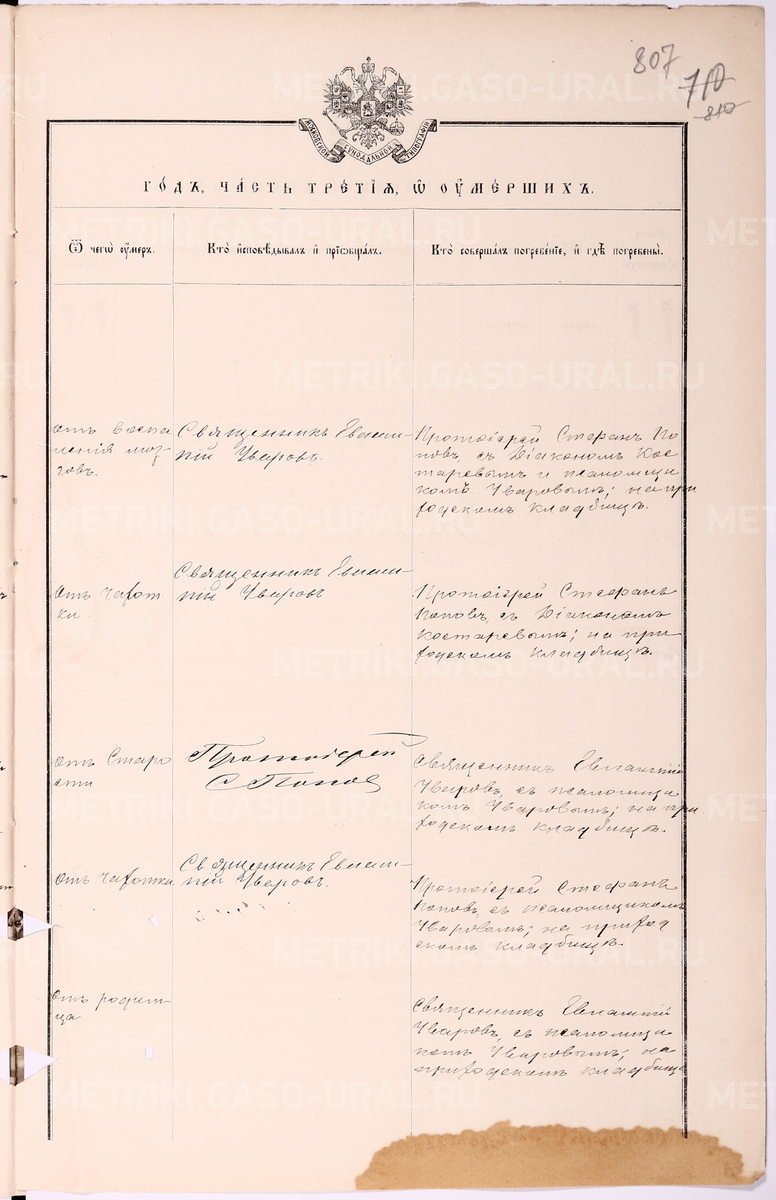 807
710
810
МОСКОВСКОЙ СѴНОДАЛЬНОЙ ТИПОГРАФІИ
ГО́ДЪ, ЧА́СТЬ ТРЕ́ТІѦ, Ѿ ОУ҆МЕ́РШИХЪ.
Ѿ чегѡ̀ оу҆́меръ.
Кто̀ и҆сповѣ́дывалъ и҆ прїѡбща́лъ.
Кто̀ соверша́лъ погребе́нїе, и҆ гдѣ̀ погребены̀.
отъ воспа
ленія моз-
говъ.
Священникъ Евлам-
пій Уваровъ.
Протоіерей Стефанъ По
повъ, съ Діакономъ Кос
таревымъ и псаломщи
комъ Уваровымъ; на при
ходскомъ кладбищѣ.
Отъ чахот
ки.
Священникъ Евлам-
пій Уваровъ
Протоіерей Стефанъ
Поповъ, съ Діакономъ
Костаревымъ; на при
ходскомъ кладбищѣ.
отъ Старо
сти
Протоіерей
С Попов
Священникъ Евлампій
Уваровъ, съ псаломщи
комъ Уваровымъ; на при
ходскомъ кладбищѣ.
Отъ чахотки
Священникъ Евлам-
пій Уваровъ.
Протоіерей Стефанъ
Поповъ, съ псаломщикомъ
Уваровымъ; на приход
скомъ кладбищѣ.
Отъ родим
ца
Священникъ Евлампій
Уваровъ, съ псаломщи
комъ Уваровымъ; на
приходскомъ кладбищѣ
METRIKI.GASO-URAL.RU